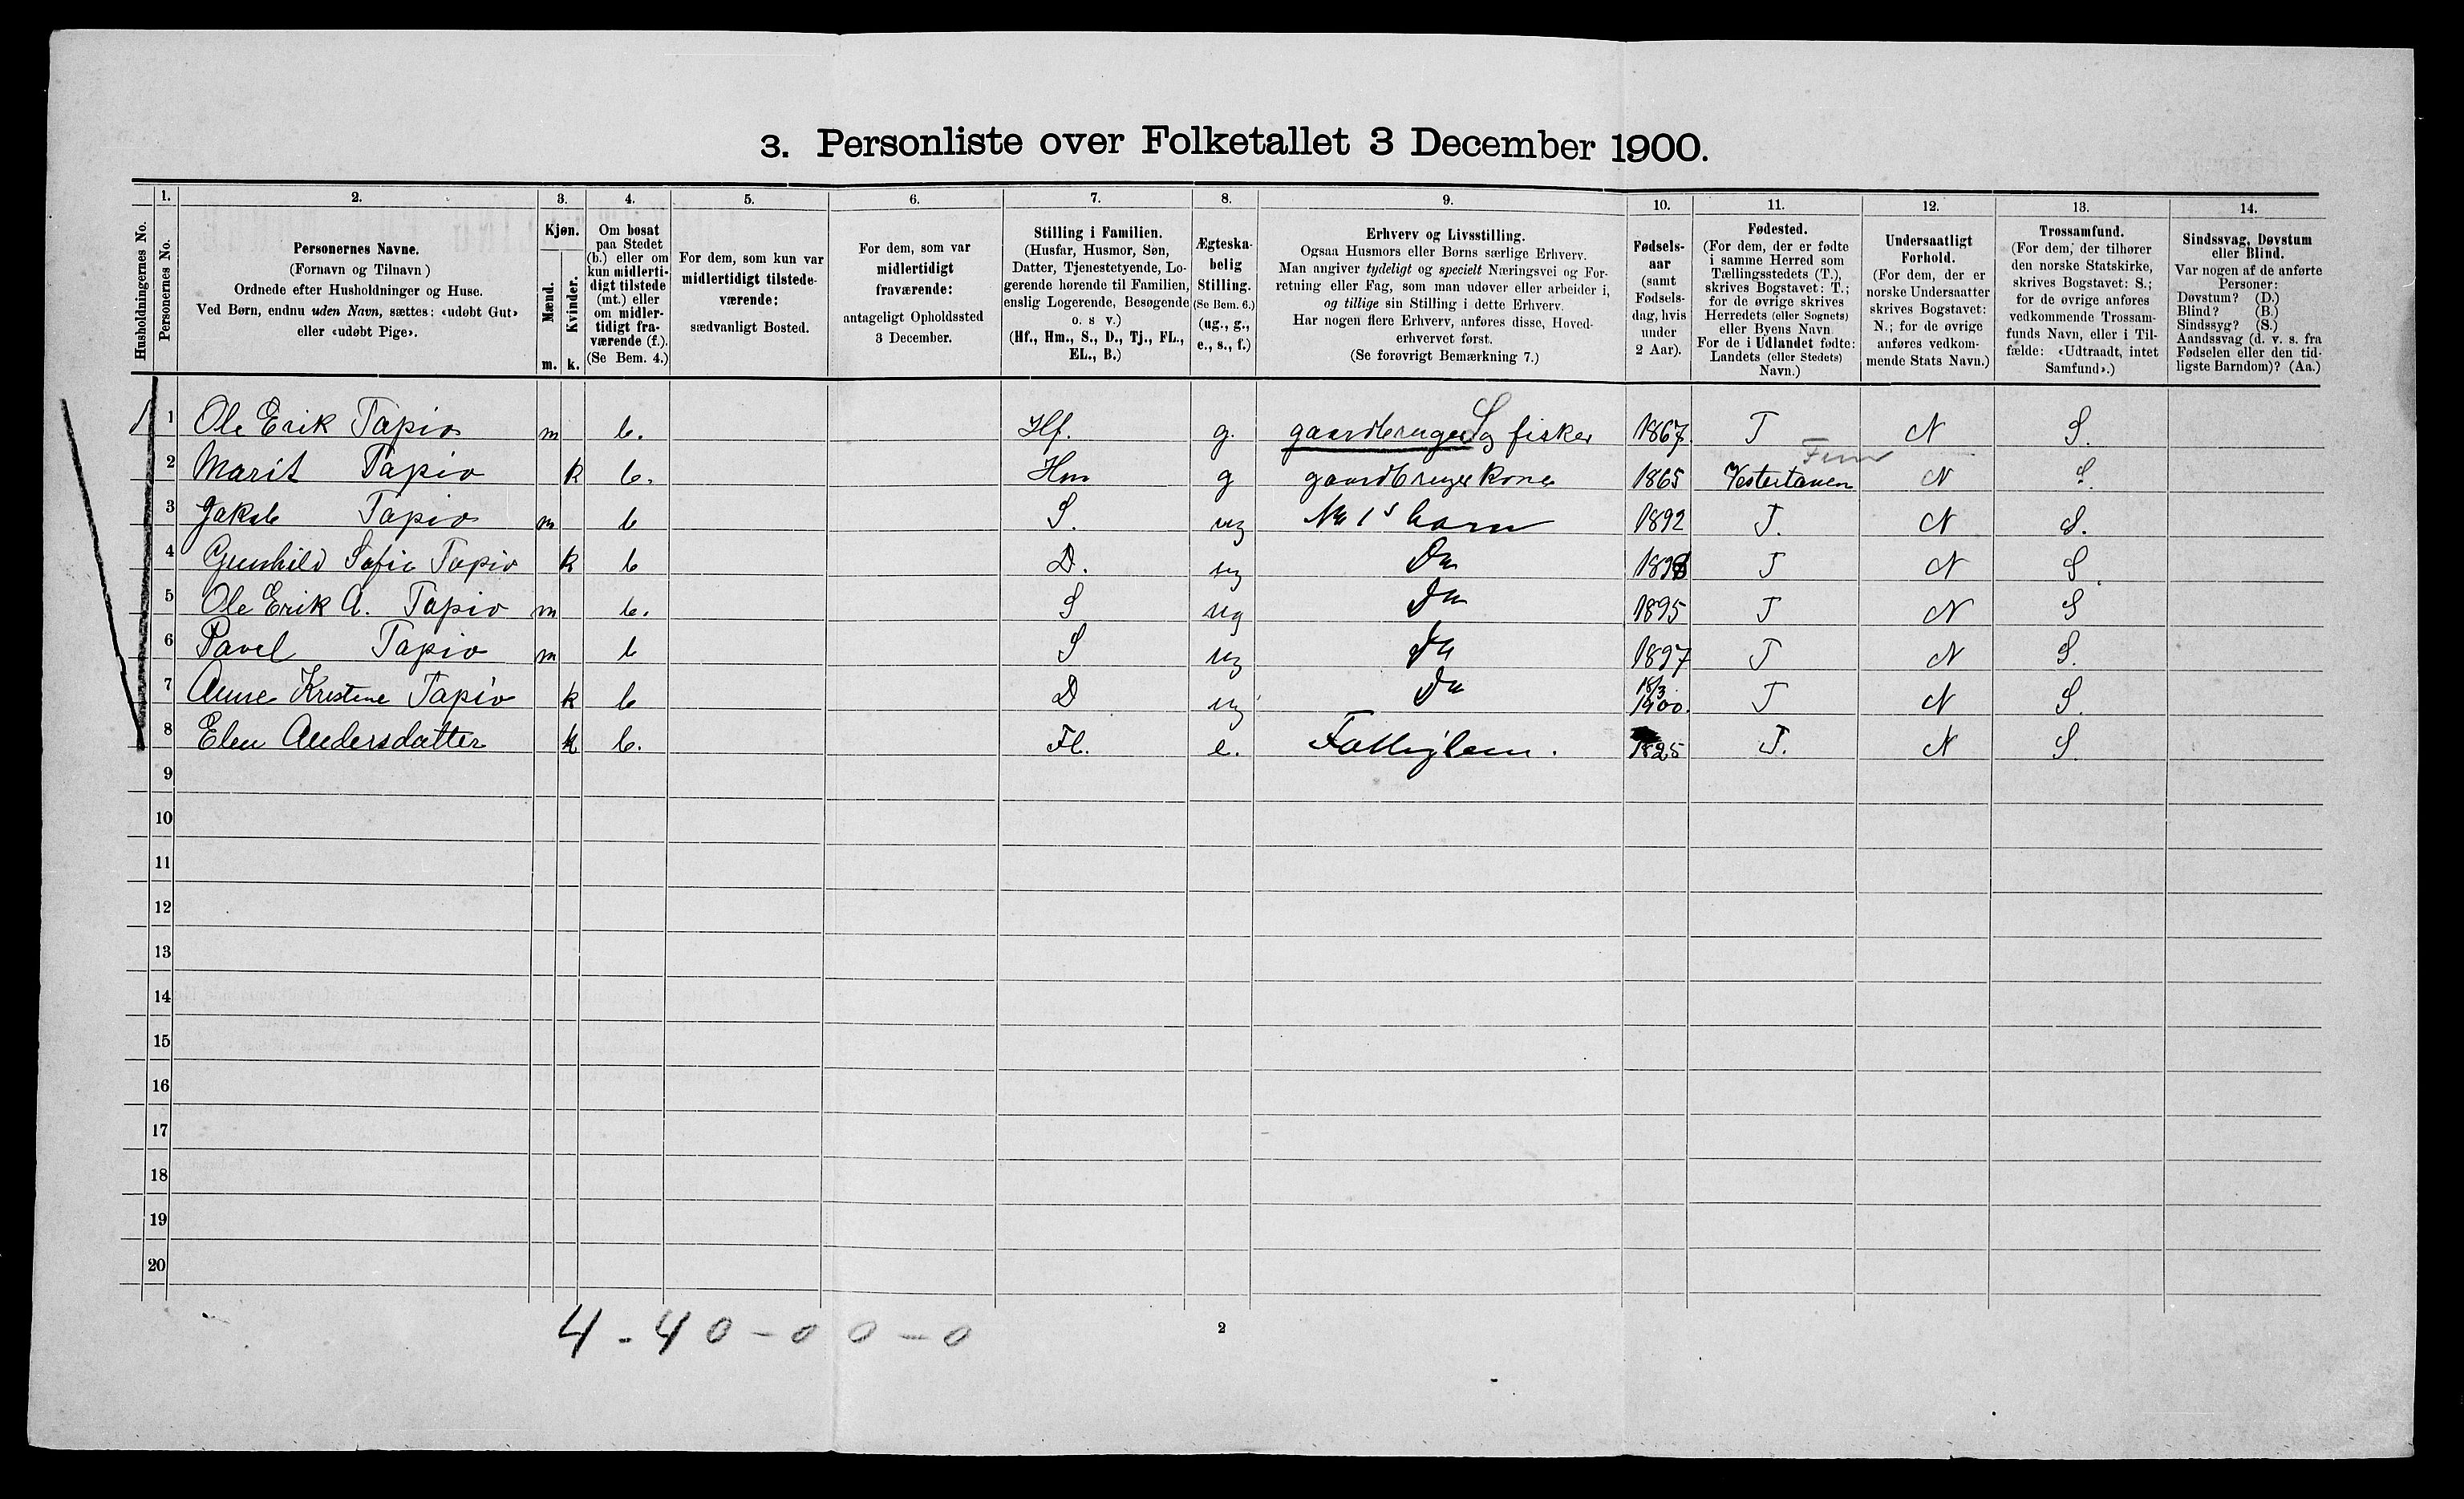 3. Personliste over Folketallet 3 December 1900.
1. 2. 3. 4. 5. 6. 7. 8. 9. 10. 11. 12. 13. 14.
Husholdningernes No.
Personernes No.
Personernes Navne.
(Fornavn og Tilnavn)
Ordnede efter Husholdninger og Huse.
Ved Børn, endnu uden Navn, sættes: «udøbt Gut»
eller «udøbt Pige».
Kjøn.
Mænd.
Kvinder.
m. k.
Om bosat
paa Stedet
(b.) eller om
kun midlerti-
digt tilstede
(mt.) eller
om midler-
tidigt fra-
værende (f.).
(Se Bem. 4.)
For dem, som kun var
midlertidigt tilstede-
værende:
sædvanligt Bosted.
For dem, som var
midlertidigt
fraværende:
antageligt Opholdssted
3 December.
Stilling i Familien.
(Husfar, Husmor, Søn,
Datter, Tjenestetyende, Lo-
gerende hørende til Familien,
enslig Logerende, Besøgende
o. s v.)
(Hf., Hm., S., D., Tj., FL.,
EL., B.)
Ægteska-
belig
Stilling.
(Se Bem. 6.)
(ug., g.,
e., s., f.)
Erhverv og Livsstilling.
Ogsaa Husmors eller Børns særlige Erhverv.
Man angiver tydeligt og specielt Næringsvei og For-
retning eller Fag, som man udøver eller arbeider i,
og tillige sin Stilling i dette Erhverv.
Har nogen flere Erhverv, anføres disse, Hoved-
erhvervet først.
(Se forøvrigt Bemærkning 7.)
Fødsels-
aar
(samt
Fødsels-
dag, hvis
under
2 Aar).
Fødested.
(For dem, der er fødte
i samme Herred som
Tællingsstedets (T.),
skrives Bogstavet: T.;
for de øvrige skrives
Herredets (eller Sognets)
eller Byens Navn
For de i Udlandet fødte:
Landets (eller Stedets)
Navn.)
Undersaatligt
Forhold.
(For dem, der er
norske Undersaatter
skrives Bogstavet:
N.; for de øvrige
anføres vedkom-
mende Stats Navn.)
Trossamfund.
(For dem, der tilhører
den norske Statskirke,
skrives Bogstavet: S.;
for de øvrige anføres
vedkommende Trossam-
funds Navn, eller i Til-
fælde: «Udtraadt, intet
Samfund».)
Sindssvag, Døvstum
eller Blind.
Var nogen af de anførte
Personer:
Døvstum? (D.)
Blind? (B.)
Sindssyg? (S.)
Aandssvag (d. v. s. fra
Fødselen eller den tid-
ligste Barndom)? (Aa.)
1 1 Ole Erik Tapio m b. Hf. g. gaardbruger S og fisker 1867 T N S.
2 Marit Tapio k b. Hm g gaardbruger kone 1865 Vestertanen N S.
3 Jakob Tapio m b S. ug No 1s barn 1892 T. N S.
4 Gunhild Sofie Tapio k b D. ug Do T N S.
5 Ole Erik A. Tapio m b. S ug Do 1895 T N S
6 Pavel Tapio m b S ug Do 1897 T N S.
7 Anne Kristine Tapio k b D ug Do 18/3 1900. T N S.
8 Elen Andersdatter k b. Fl. e. Fattiglem. 1825 T. N S.
9
10
11
12
13
14
15
16
17
18
19
20
4 - 40 - 0 0 - 0
2